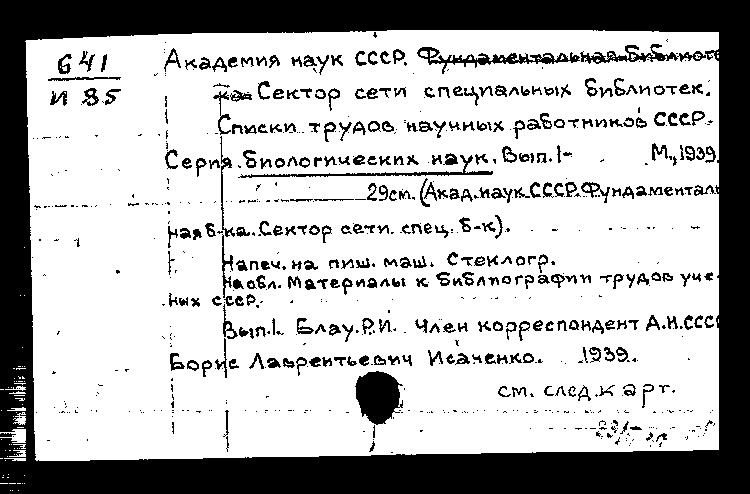 641
И 85
Академия наук СССР. Фундаментальная библиоте
ка Сектор сети специальных библиотек.
Списки трудов научных работников СССР.
Серия биологических наук. Вып.1- М.,1939.
29см. (Акад.наук СССР. Фундаменталь
ная б-ка. Сектор сети спец. б-к).
Напеч. на пиш. маш. Стеклогр.
На обл. Материалы к библиографии трудов уче-
ных СССР.
Вып.1. Блау.Р.И. Член корреспондент А.Н.СССР
Борис Лаврентьевич Исаченко. 1939.
см. след.карт.